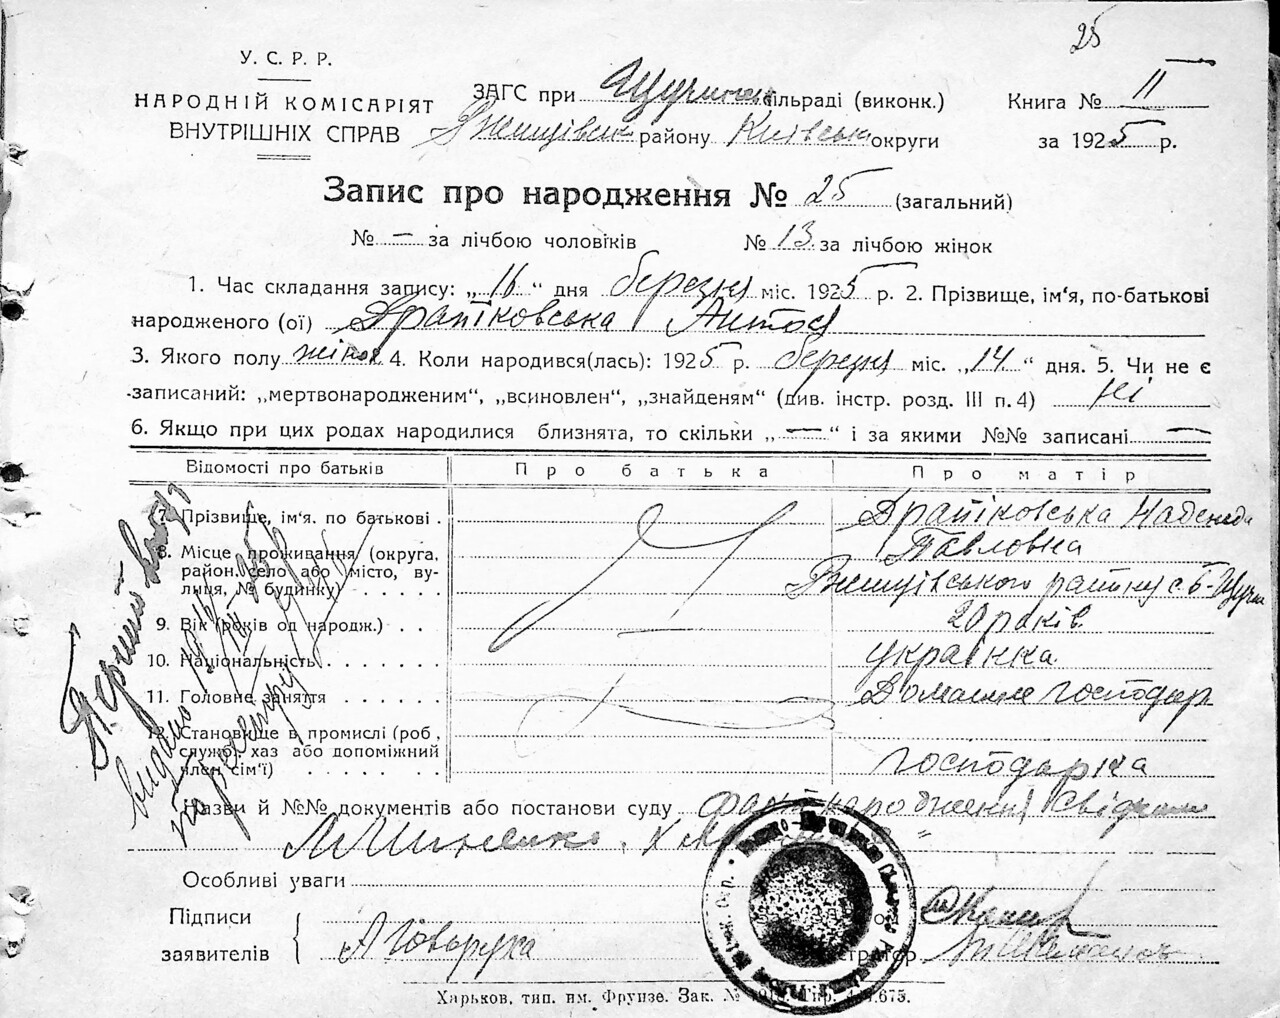 25
У. С. Р. Р.
НАРОДНІЙ КОМІСАРІЯТ
ВНУТРІШНІХ СПРАВ
ЗАГС при Щучинск сільраді (виконк.)
Ржищівськ району Київськ округи
Книга № II
за 1925 р.
Запис про народження № 25 (загальний)
№ — за лічбою чоловіків № 13 за лічбою жінок
1. Час складання запису: „16“ дня березня міс. 1925 р. 2. Прізвище, ім'я, по-батькові
народженого (ої) Драпіковська Антося
3. Якого полу жіноч 4. Коли народився(лась): 1925 р. березня міс. „14“ дня. 5. Чи не є
записаний: „мертвонародженим“, „всиновлен“, „знайденям“ (див. інстр. розд. III п. 4) Ні
6. Якщо при цих родах народилися близнята, то скільки „—“ і за якими №№ записані —
Відомості про батьків Про батька Про матір
7. Прізвище, ім'я. по батькові . Драпіковська Надежда
Павловна
8. Місце проживання (округа,
район. село або місто, ву-
лиця, № будинку) Ржищівського району с. Б-Щучи
9. Вік (років од народж.) . . 20 років
10. Національність . . . . . . українка
11. Головне заняття . . . . . . Домашнє господар
12. Становище в промислі (роб,
служб. хаз або допоміжний
член сім'ї) . . . . . . господарка
Перший
видано
по реєстру
Назви й №№ документів або постанови суду Факт народження свідками
Особливі уваги
Підписи
заявителів
А Говоруха
Харьков, тип. им. Фрунзе. Зак. № Тир. 675.